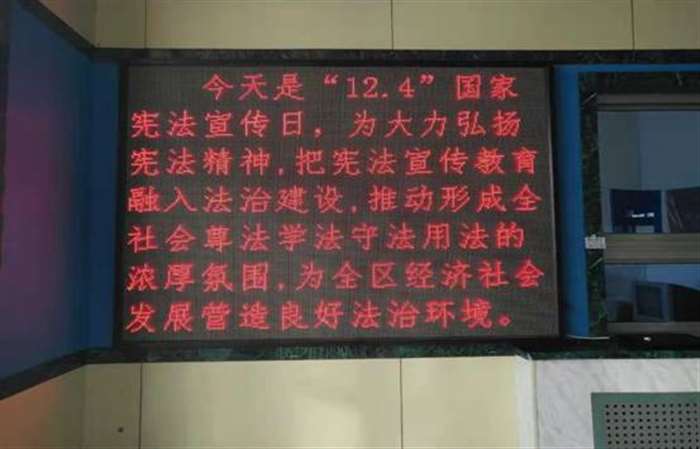 今天是“12.4”国家
宪法宣传日，为大力弘扬
宪法精神,把宪法宣传教育
融入法治建设,推动形成全
社会尊法学法守法用法的
浓厚氛围,为全区经济社会
发展营造良好法治环境。